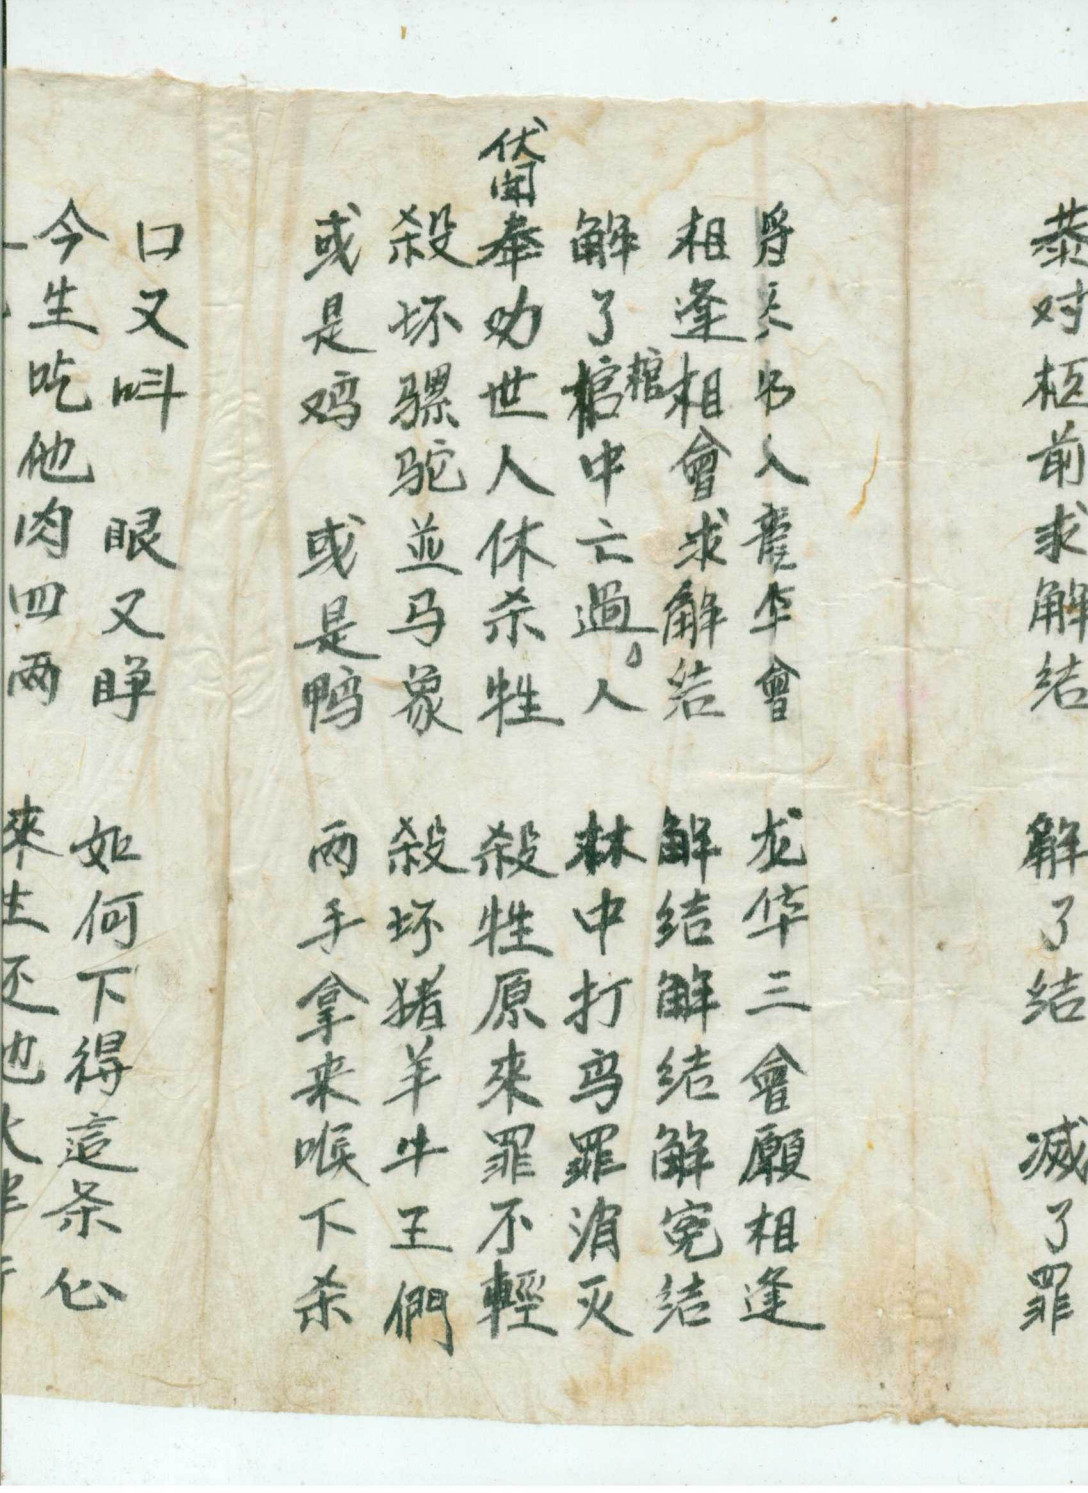 恭对柩前求解结 解了结 滅了罪
将来吊入龍华會 龙华三會願相逢
相逢相會求解结 解结解结解冤结
解了棺棺中亡過人 林中打鸟罪消灭
伏聞奉劝世人休杀牲 殺牲原來罪不輕
殺坏骡驼並马象 殺坏猪羊牛王們
或是鸡 或是鸭 两手拿来喉下杀
口又呌 眼又睁 如何下得這条心
今生吃他肉四两 來生还他